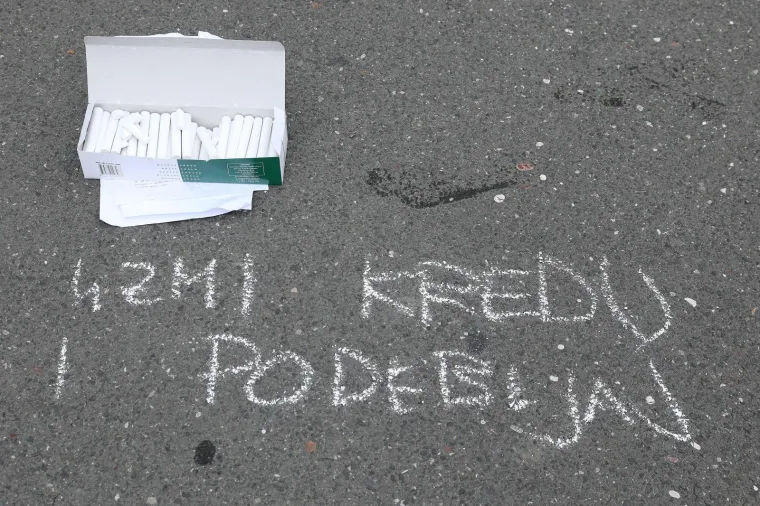 UZMI KREDU
I PODEBLJAJ